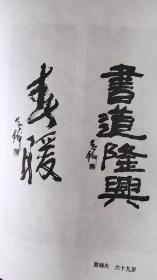 書道隆興
春暖
六十九岁